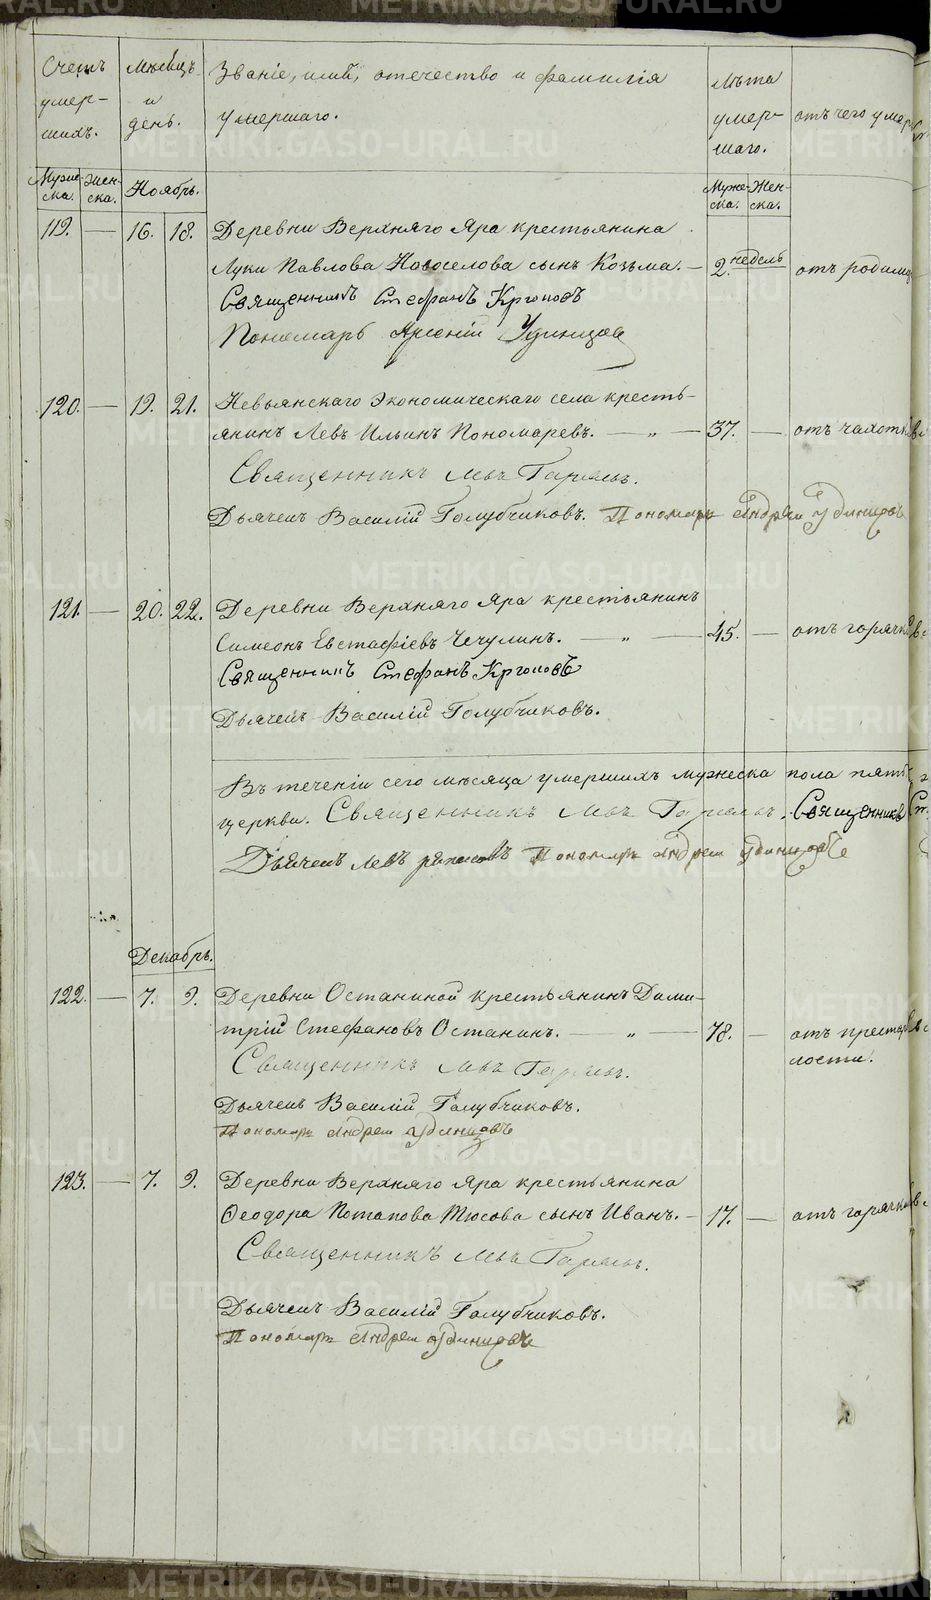 Счетъ умер- шихъ.
Мѣсяцъ и день.
Званіе, имя, отечество и фамилія умершаго.
Лѣта умер- шаго.
отъ чего умеръ
Муже- ска. Жен- ска. Ноябрь. Муже- ска. Жен- ска.
119. — 16. 18. Деревни Верхняго Яра крестьянина
Луки Павлова Новоселова сынъ Козьма. — 2. недель отъ родимц
Священникъ Стефанъ
Пономарь Арсеній Удинцов
120. — 19. 21. Невьянскаго Экономическаго села кресть-
янинъ Левъ Ильинъ Пономаревъ. — „ — 37. — отъ чахотк
Священникъ Левъ
Дьячекъ Василій Голубчиковъ. Пономарь Андрей Удинцовъ
121. — 20. 22. Деревни Верхняго Яра крестьянинъ
Симеонъ Евстафіевъ Чечулинъ. — „ — 45. — отъ горячк
Священникъ Стефанъ
Дьячекъ Василій Голубчиковъ.
Въ теченіи сего мѣсяца умершихъ мужеска пола пять
церкви. Священникъ Левъ Священникъ Ст.
Дьячекъ Левъ Пономарь Андрей Удинцовъ
Декабрь.
122. — 7. 9. Деревни Останиной крестьянинъ Дими-
трій Стефановъ Останинъ. — „ — 78. — отъ престар
лости.
Священникъ Левъ
Дьячекъ Василій Голубчиковъ.
Пономарь Андрей Удинцовъ
123. — 7. 9. Деревни Верхняго Яра крестьянина
Ѳеодора Потапова Тюсова сынъ Иванъ. — 17. — отъ горячк
Священникъ Левъ
Дьячекъ Василій Голубчиковъ.
Пономарь Андрей Удинцовъ
METRIKI.GASO-URAL.RU